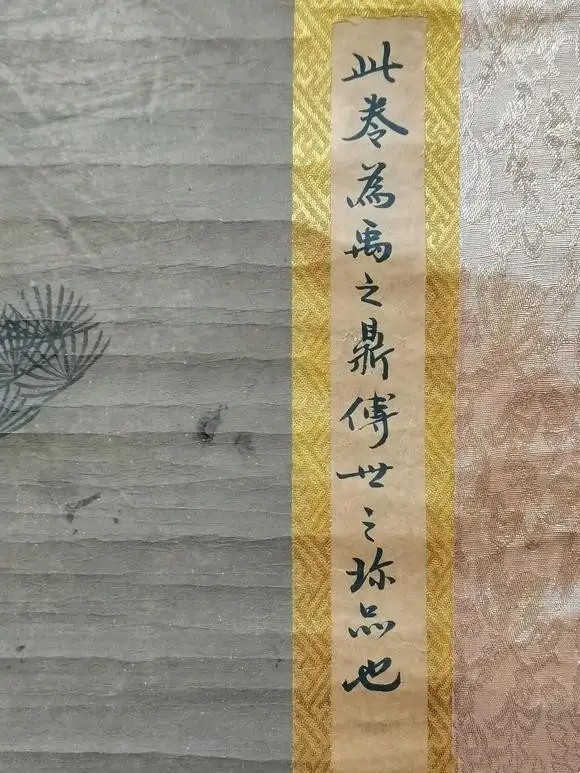 此卷為禹之鼎傳世之珎品也